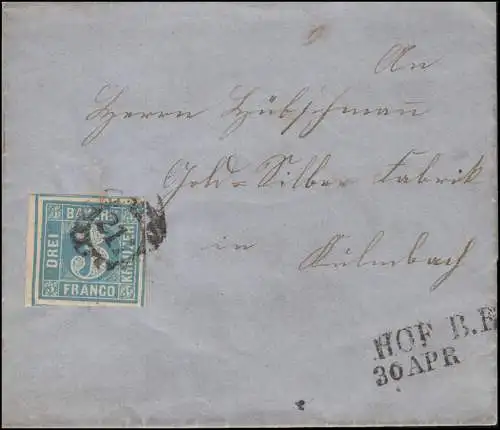 An
Herrn Hübschmañ
Gold=Silber Fabrik
in Külmbach
BAYERN
DREI
KREUZER
FRANCO
3
HOF B.B
30 APR